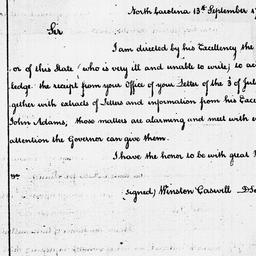 North Carolina 13th September 17
Sir
I am directed by his Excellency the
or of this State (who is very ill and unable to write) to ac
ledge the receipt from your Office of your Letter of the 3 of Jul
gether with extracts of Letters and information from his Exce
John Adams; those matters are alarming and meet with e
attention the Governor can give them.
I have the honor to be with great
signed) Winston Caswell D Se